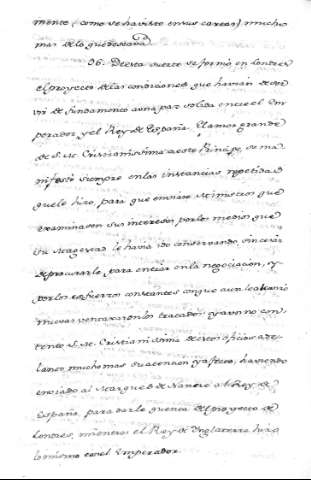 mente (como se havisto ensus cartas) mucho
mas delo que deseava
36. Deesta suerte se formò en Londres
el proyecto delas condiciones que havian de ser
vir de fundamento auna paz solida entre el Em
perador y el Rey de España. El amor grande
de S. M. Cristianissima aeste Principe, se ma
nifestò siempre enlas instancias repetidas
quele hizo, para que embiase Ministros que
examinasen sus intereses por los medios que
Su Magestad le havia ido conservando sincerar
deprocurarle, para entrar enla negociacion, y
por los esfuerzos constantes conque aun le obtenia
nuevas ventaxas en los tratados: y aun no con
tento S. M. Cristianissima de estos oficios ade
lantò mucho mas su atencion y afecto, haviendo
enviado al Marques de Nancre al Rey de
España para darle quenta del proyecto de
Londres, mientras el Rey de Inglaterra hacia
lo mismo con el Emperador